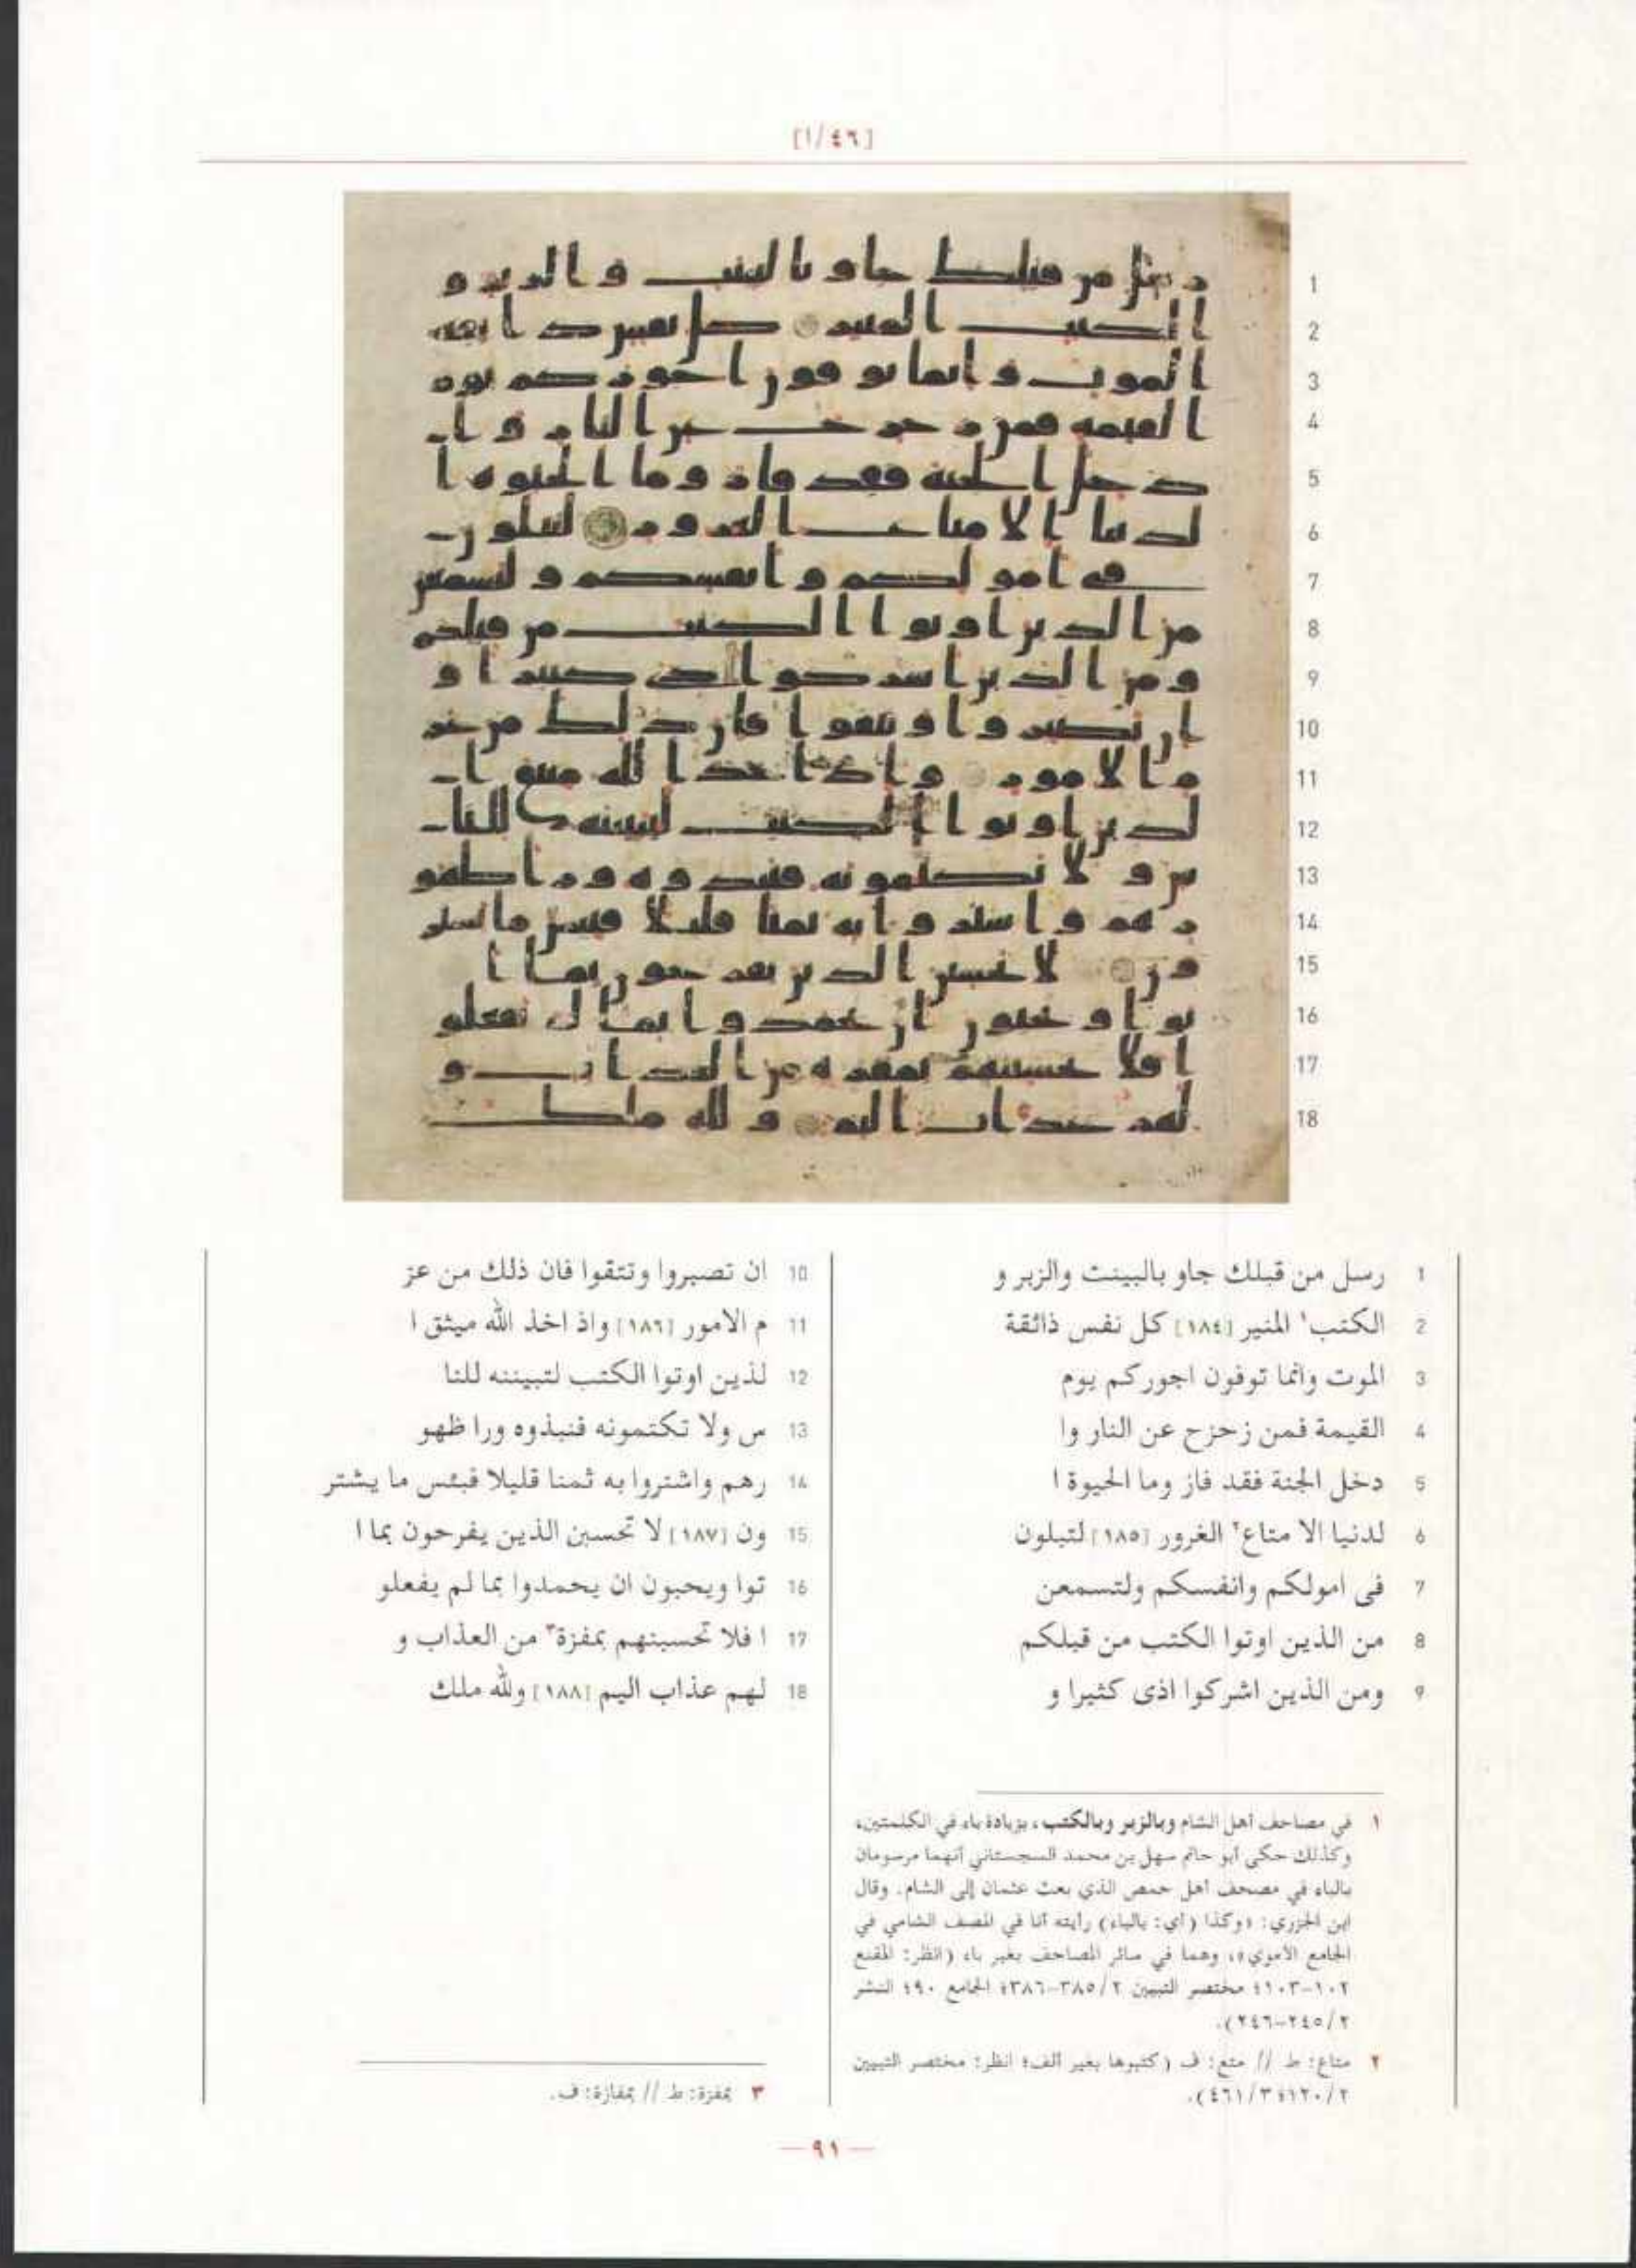 [٤٦/ا]
1 رسل من قبلك جاو بالبينت والزبر و
2 الكتب١ المنير [١٨٤] كل نفس ذائقة
3 الموت وانما توفون اجوركم يوم
4 القيمة فمن زحزح عن النار وا
5 دخل الجنة فقد فاز وما الحيوة ا
6 لدنيا الا متاع٢ الغرور [١٨٥] لتبلون
7 فى امولكم وانفسكم ولتسمعن
8 من الذين اوتوا الكتب من قبلكم
9 ومن الذين اشركوا اذى كثيرا و
10 ان تصبروا وتتقوا فان ذلك من عز
11 م الامور [١٨٦] واذ اخذ الله ميثق ا
12 لذين اوتوا الكتب لتبيننه للنا
13 س ولا تكتمونه فنبذوه ورا ظهو
14 رهم واشتروا به ثمنا قليلا فبئس ما يشتر
15 ون [١٨٧] لا تحسبن الذين يفرحون بما ا
16 توا ويحبون ان يحمدوا بما لم يفعلو
17 ا فلا تحسبنهم بمفزة٣ من العذاب و
18 لهم عذاب اليم [١٨٨] ولله ملك
١ في مصاحف أهل الشام وبالزبر وبالكتب، بزيادة باء في الكلمتين،
وكذلك حكى أبو حاتم سهل بن محمد السجستاني أنهما مرسومان
بالباء في مصحف أهل حمص الذي بعث عثمان إلى الشام. وقال
ابن الجزري: «وكذا (أي: بالباء) رأيته أنا في المصف الشامي في
الجامع الأموي»، وهما في سائر المصاحف بغير باء (انظر: المقنع
١٠٢-١٠٣؛ مختصر التبيين ٢/ ٣٨٥-٣٨٦؛ الجامع ٩٠؛ النشر
٢/ ٢٤٥-٢٤٦).
٢ متاع: ط // متع: ف (كتبوها بغير ألف؛ انظر: مختصر التبيين
٢/ ١٢٠؛ ٣/ ٤٦١).
٣ بمفزة: ط // بمفازة: ف.
— ٩١ —